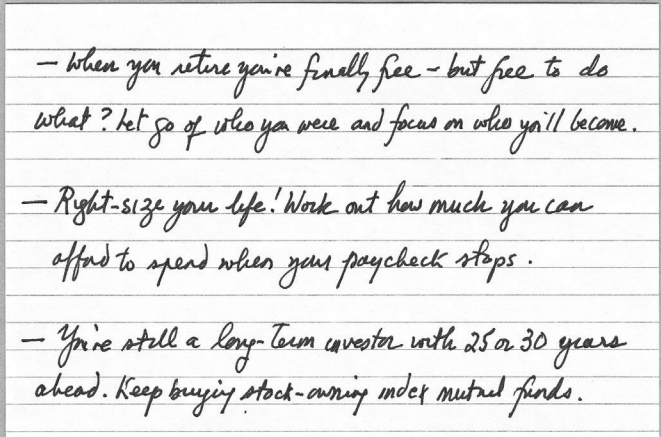 — When you retire you're finally free – but free to do
what? Let go of who you were and focus on who you'll become.
— Right-size your life! Work out how much you can
afford to spend when your paycheck stops.
— You're still a long-term investor with 25 or 30 years
ahead. Keep buying stock-owning index mutual funds.